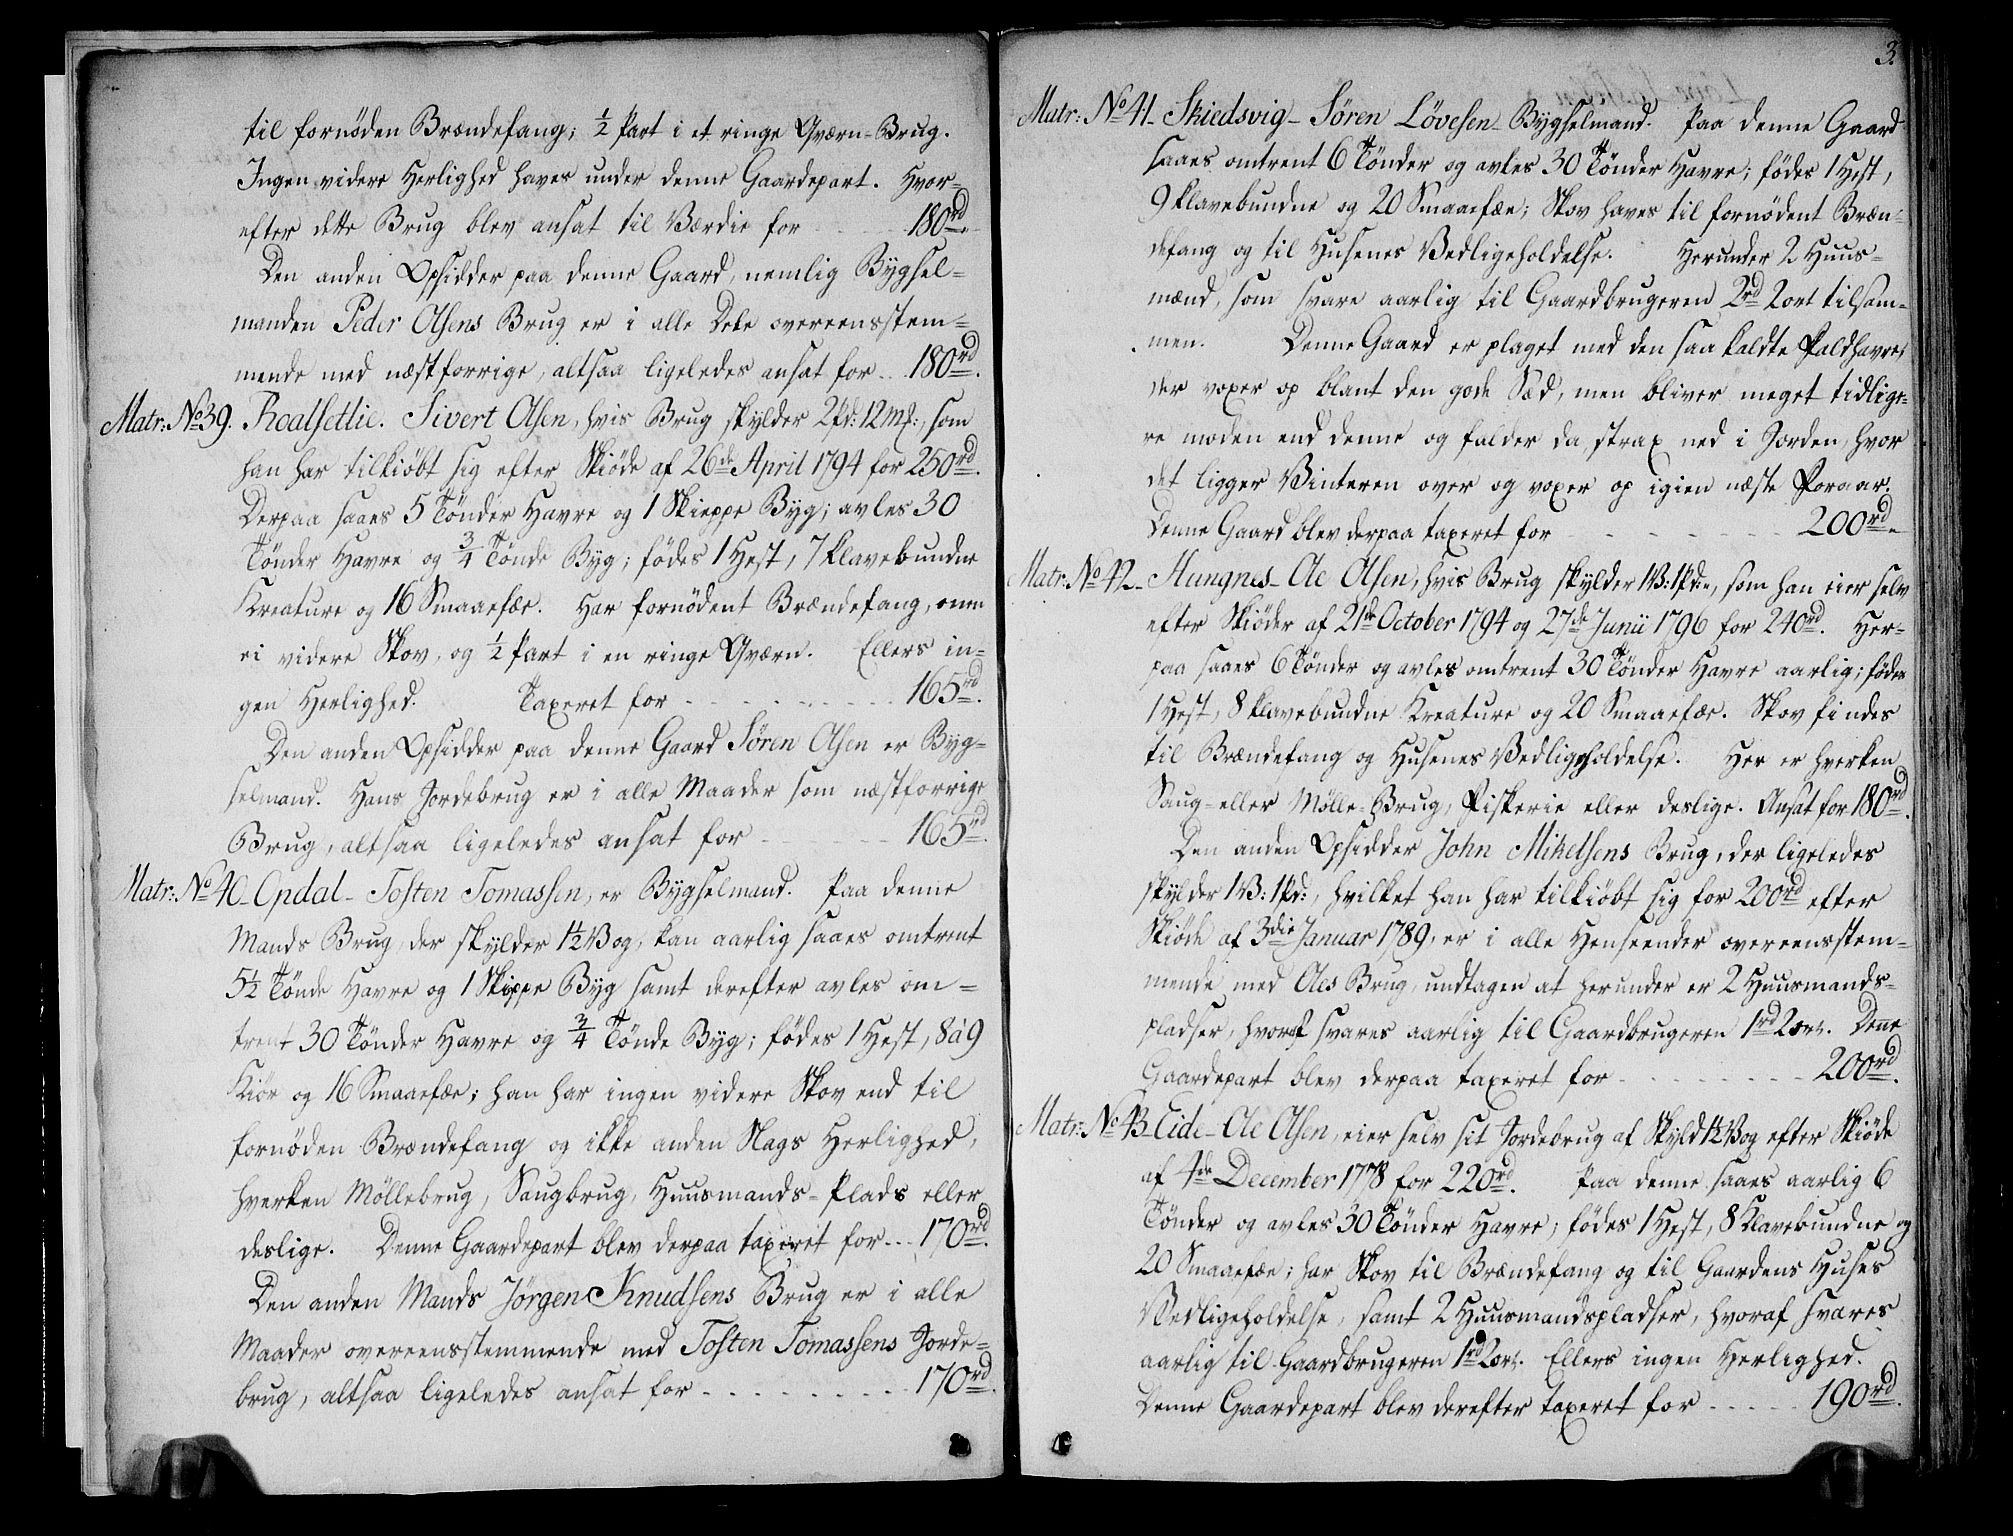 til fornøden Brændefang; ½ Part i et ringe Qværn-Brug.
Ingen videre Herlighed haves under denne Gaardepart. Hvor-
efter dette Brug blev ansat til Værdie for - - - 180rd.
Den anden Opsidder paa denne Gaard, nemlig Bygsel-
manden Peder Olsens Brug er i alle Dele overeensstem-
mende med næstforrige, altsaa ligeledes ansat for - - 180rd.
Matr: No 39. Roalsetlie. Sivert Olsen, hvis Brug skylder 2pd: 12mk:, som
han har tilkiøbt sig efter Skiøde af 26de April 1794 for 250rd.
Derpaa saaes 5 Tønder Havre og 1 Skieppe Byg; avles 30
Tønder Havre og ¾ Tønde Byg; fødes 1 Hest, 7 klavebundne
Kreature og 16 Smaaefæe. Har fornødent Brændefang, men
ei videre Skov, og ½ Part i en ringe Qværn. Ellers in-
gen Herlighed. Taxeret for - - - - - - - - 165rd.
Den anden Opsidder paa denne Gaard Søren Olsen er Byg-
selmand. Hans Jordebrug er i alle Maader som næstforrige
Brug, altsaa ligeledes ansat for - - - - - - 165rd.
Matr: No 40 - Opdal - Tosten Tomassen, er Bygselmand. Paa denne
Mands Brug, der skylder 1½ Vog, kan aarlig saaes omtrent
5½ Tønde Havre og 1 Skippe Byg samt derefter avles om-
trent 30 Tønder Havre og ¾ Tønde Byg; fødes 1 Hest, 8 à 9
Kiør og 16 Smaaefæe; han har ingen videre Skov end til
fornøden Brændefang og ikke anden Slags Herlighed,
hverken Møllebrug, Saugbrug, Huusmands-Plads eller
deslige. Denne Gaardepart blev derpaa taxeret for - - - 170rd.
Den anden Mands Jørgen Knudsens Brug er i alle
Maader overeensstemmende med Tosten Tomassens Jorde-
brug, altsaa ligeledes ansat for - - - - - - - - - 170rd.
3.
Matr: No 41 - Skiedsvig - Søren Løvesen - Bygselmand. Paa denne Gaard
saaes omtrent 6 Tønder og avles 30 Tønder Havre; fødes 1 Hest,
9 klavebundne og 20 Smaaefæe; Skov haves til fornødent Bræn-
defang og til Husenes Vedligeholdelse. Herunder 2 Huus-
mænd, som svare aarlig til Gaardbrugeren 2rd 2ort tilsam-
men. Denne Gaard er plaget med den saa kaldte Faldhavre,
der voxer op blant den gode Sæd, men bliver meget tidlige-
re moden end denne og falder da strax ned i Jorden, hvor
det ligger Vinteren over og voxer op igien næste Foraar.
Denne Gaard blev derpaa taxeret for - - - - - - 200rd.
Matr: No 42 - Hungnes - Ole Olsen, hvis Brug skylder 1V: 1pd:, som han eier selv
efter Skiøder af 21de October 1794 og 27de Junii 1796 for 240rd. Her-
paa saaes 6 Tønder og avles omtrent 30 Tønder Havre aarlig; fødes
1 Hest, 8 klavebundne Kreature og 20 Smaaefæe. Skov findes
til Brændefang og Husenes Vedligeholdelse. Her er hverken
Saug- eller Mølle-Brug, Fiskerie eller deslige. Ansat for 180rd.
Den anden Opsidder John Mikelsens Brug, der ligeledes
skylder 1V: 1pd:, hvilket han har tilkiøbt sig for 200rd efter
Skiøde af 3die Januar 1789, er i alle Henseender overeensstem-
mende med Oles Brug, undtagen at herunder er 2 Huusmands-
pladser, hvoraf svares aarlig til Gaardbrugeren 1rd 2ort. Denne
Gaardepart blev derpaa taxeret for - - - - - - - 200rd.
Matr: No 43 - Eide - Ole Olsen, eier selv sit Jordebrug af Skyld 1½ Vog efter Skiøde
af 4de December 1778 for 220rd. Paa denne saaes aarlig 6
Tønder og avles 30 Tønder Havre; fødes 1 Hest, 8 Klavebundne og
20 Smaaefæe; har Skov til Brændefang og til Gaardens Huses
Vedligeholdelse, samt 2 Huusmandspladser, hvoraf svares
aarlig til Gaardbrugeren 1rd 2ort. Ellers ingen Herlighed.
Denne Gaardepart blev derefter taxeret for - - - - - 190rd.